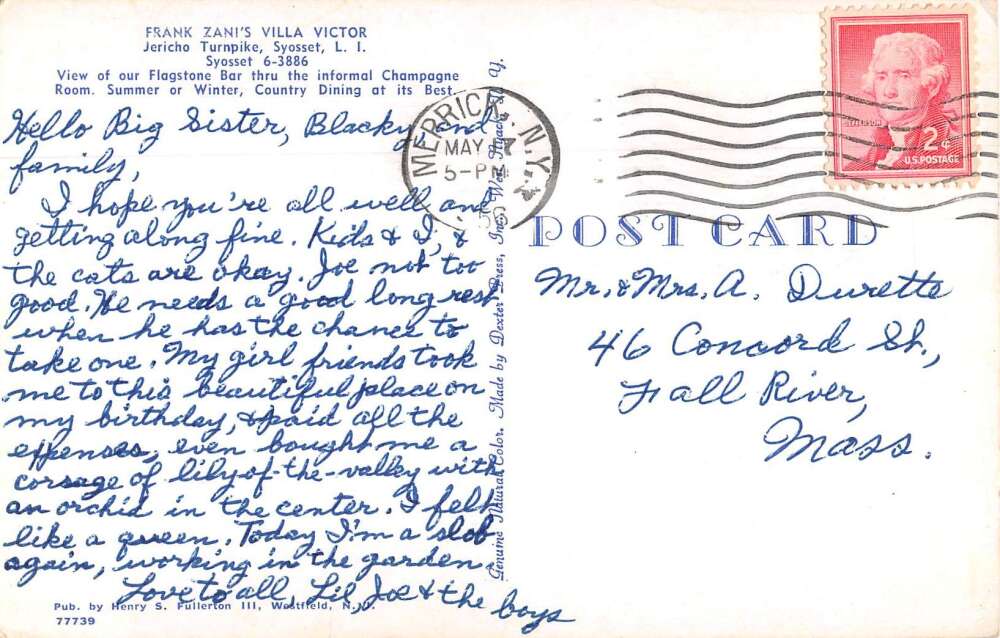 FRANK ZANI'S VILLA VICTOR
Jericho Turnpike, Syosset, L. I.
Syosset 6-3886
View of our Flagstone Bar thru the informal Champagne
Room. Summer or Winter, Country Dining at its Best.
Hello Big Sister, Blacky and
family,
I hope you're all well and
getting along fine. Kids & I, &
the cats are okay. Joe not too
good. He needs a good long rest
when he has the chance to
take one. My girl friends took
me to this beautiful place on
my birthday, & paid all the
expenses, even bought me a
corsage of lily-of-the-valley with
an orchid in the center. I felt
like a queen. Today I'm a slob
again, working in the garden.
Love to all, Lil, Joe & the boys
Pub. by Henry S. Fullerton III, Westfield, N.J.
77739
Genuine Natural Color. Made by Dexter Press, Inc., West Nyack, N. Y.
MERRICK, N.Y.
MAY
5-PM
JEFFERSON
2¢
U.S. POSTAGE
POST CARD
Mr. & Mrs. A. Durette
46 Concord St.,
Fall River,
Mass.